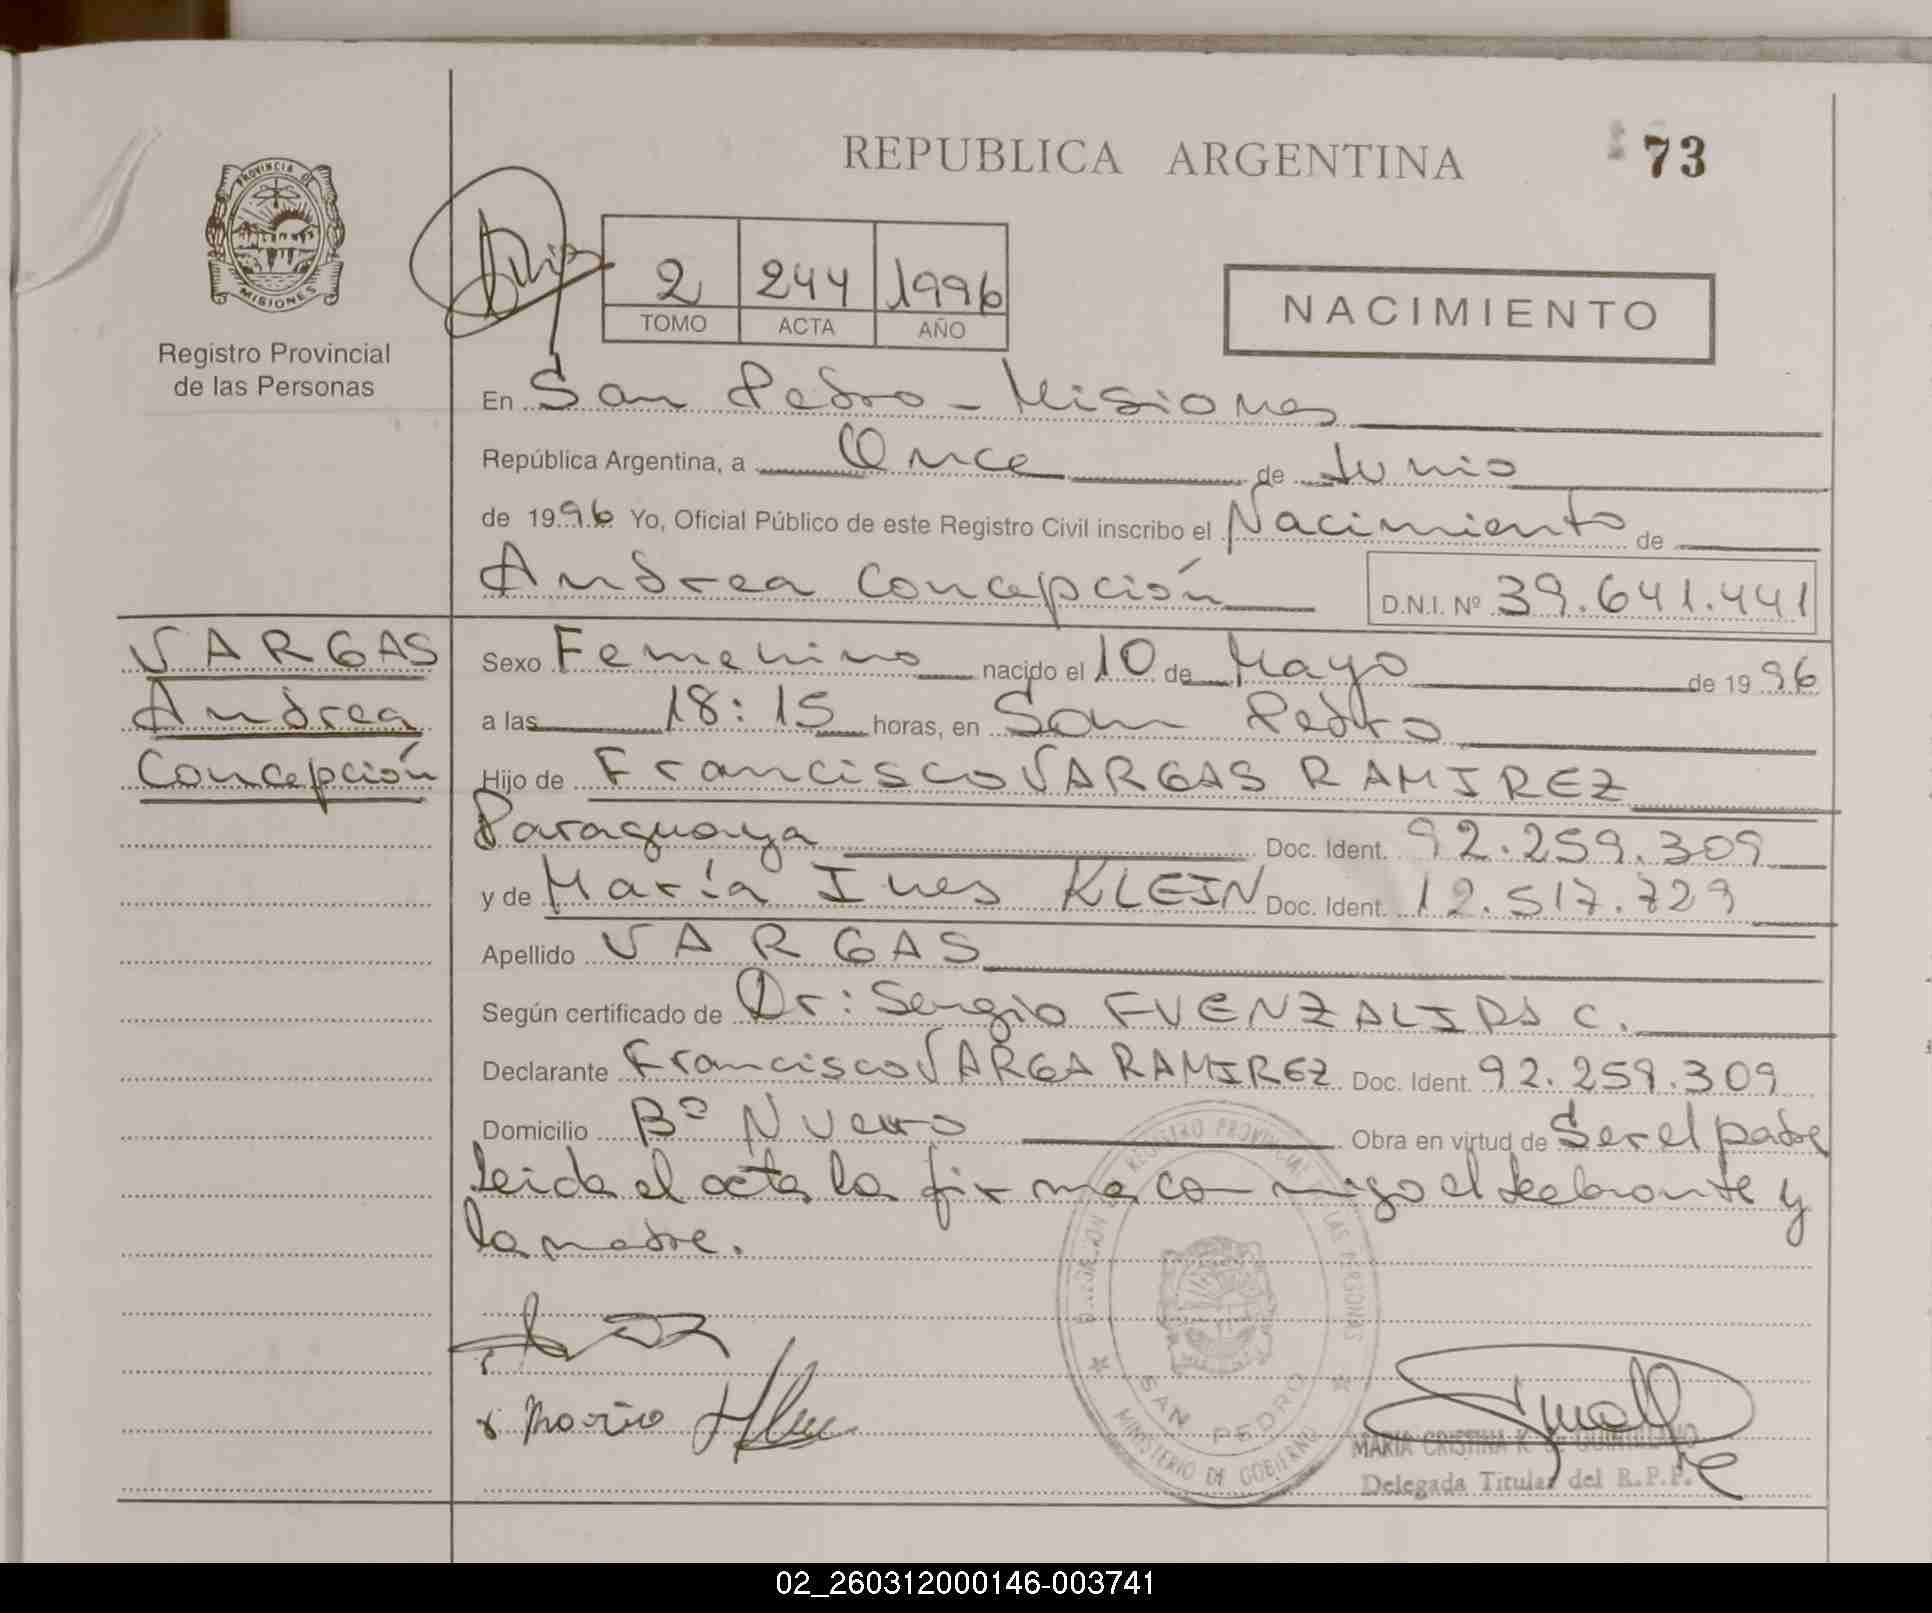 REPUBLICA ARGENTINA
73
PROVINCIA DE
MISIONES
Registro Provincial
de las Personas
2 244 1996
TOMO ACTA AÑO
NACIMIENTO
En San Pedro - Misiones
República Argentina, a Once de Junio
de 1996 Yo, Oficial Público de este Registro Civil inscribo el Nacimiento de
Andrea Concepción D.N.I. Nº 39.641.441
VARGAS
Andrea
Concepción
Sexo Femenino nacido el 10 de Mayo de 1996
a las 18:15 horas, en San Pedro
Hijo de Francisco VARGAS RAMIREZ
Paraguaya Doc. Ident. 92.259.309
y de María Ines KLEIN Doc. Ident. 12.517.729
Apellido VARGAS
Según certificado de Dr: Sergio FUENZALIDA C.
Declarante Francisco VARGA RAMIREZ Doc. Ident. 92.259.309
Domicilio Bº Nuevo Obra en virtud de Ser el padre
Leida el acta la firma conmigo el declarante y
la madre.
REGISTRO PROVINCIAL LAS PERSONAS
SAN PEDRO
MINISTERIO DE GOBIERNO
MARIA CRISTINA K. de QUINTILIANO
Delegada Titular del R.P.P.
02_260312000146-003741